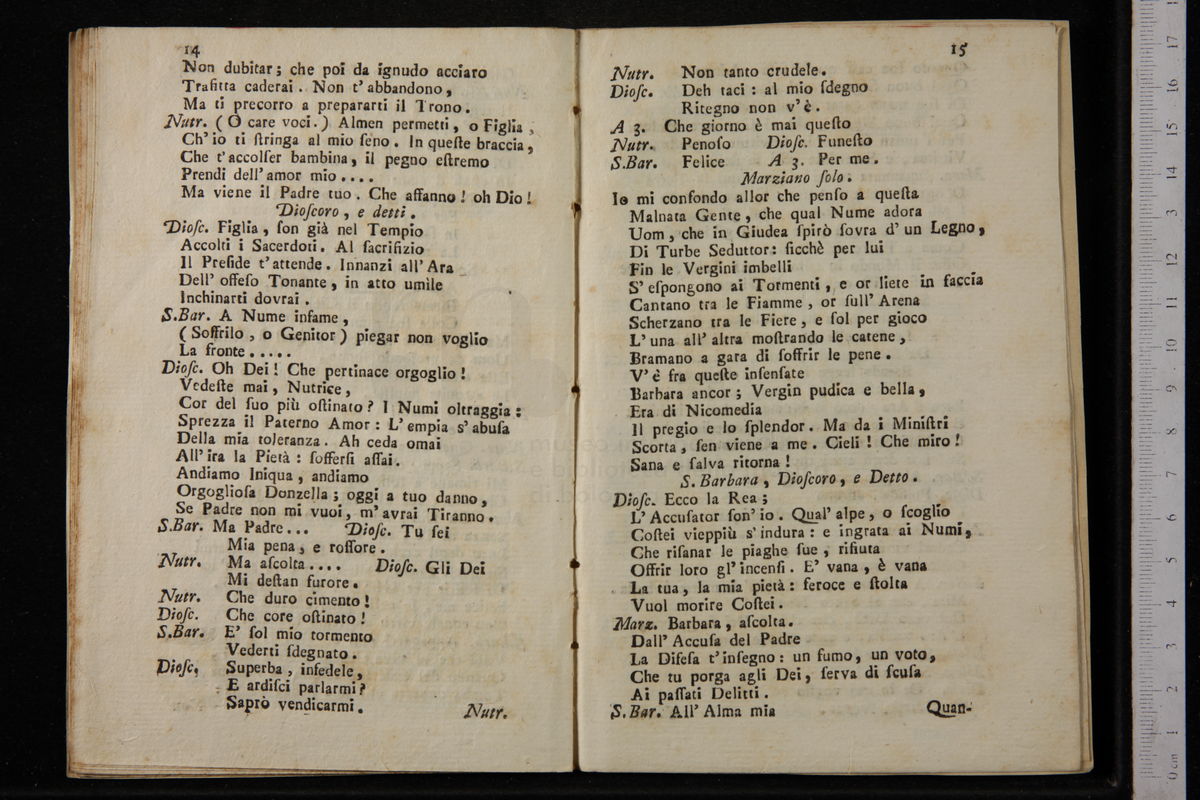 14
Non dubitar; che poi da ignudo acciaro
Trafitta caderai. Non t'abbandono,
Ma ti precorro a prepararti il Trono.
Nutr. (O care voci.) Almen permetti, o Figlia,
Ch'io ti ſtringa al mio ſeno. In queſte braccia,
Che t'accolſer bambina, il pegno eſtremo
Prendi dell'amor mio....
Ma viene il Padre tuo. Che affanno! oh Dio!
Dioſcoro, e detti.
Dioſc. Figlia, ſon già nel Tempio
Accolti i Sacerdoti. Al ſacrifizio
Il Preſide t'attende. Innanzi all'Ara
Dell'offeſo Tonante, in atto umìle
Inchinarti dovrai.
S.Bar. A Nume infame,
(Soffrilo, o Genitor) piegar non voglio
La fronte.....
Dioſc. Oh Dei! Che pertinace orgoglio!
Vedeſte mai, Nutrice,
Cor del ſuo più oſtinato? I Numi oltraggia:
Sprezza il Paterno Amor: L'empia s'abuſa
Della mia toleranza. Ah ceda omai
All'ira la Pietà: ſofferſi aſſai.
Andiamo Iniqua, andiamo
Orgoglioſa Donzella; oggi a tuo danno,
Se Padre non mi vuoi, m'avrai Tiranno.
S.Bar. Ma Padre... Dioſc. Tu ſei
Mia pena, e roſſore.
Nutr. Ma aſcolta.... Dioſc. Gli Dei
Mi deſtan furore.
Nutr. Che duro cimento!
Dioſc. Che core oſtinato!
S.Bar. E' ſol mio tormento
Vederti ſdegnato.
Dioſc. Superba, infedele,
E ardiſci parlarmi?
Saprò vendicarmi.
Nutr.
15
Nutr. Non tanto crudele.
Dioſc. Deh taci: al mio ſdegno
Ritegno non v'è.
A 3. Che giorno è mai queſto
Nutr. Penoſo Dioſc. Funeſto
S.Bar. Felice A 3. Per me.
Marziano ſolo.
Io mi confondo allor che penſo a queſta
Malnata Gente, che qual Nume adora
Uom, che in Giudea ſpirò ſovra d'un Legno,
Di Turbe Seduttor: ſicchè per lui
Fin le Vergini imbelli
S'eſpongono ai Tormenti, e or liete in faccia
Cantano tra le Fiamme, or ſull'Arena
Scherzano tra le Fiere, e ſol per gioco
L'una all'altra moſtrando le catene,
Bramano a gara di ſoffrir le pene.
V'è fra queſte inſenſate
Barbara ancor; Vergin pudica e bella,
Era di Nicomedia
Il pregio e lo ſplendor. Ma da i Miniſtri
Scorta, ſen viene a me. Cieli! Che miro!
Sana e ſalva ritorna!
S. Barbara, Dioſcoro, e Detto.
Dioſc. Ecco la Rea;
L'Accuſator ſon'io. Qual'alpe, o ſcoglio
Coſtei vieppiù s'indura: e ingrata ai Numi,
Che riſanar le piaghe ſue, rifiuta
Offrir loro gl'incenſi. E' vana, è vana
La tua, la mia pietà: feroce e ſtolta
Vuol morire Coſtei.
Marz. Barbara, aſcolta.
Dall'Accuſa del Padre
La Difeſa t'inſegno: un fumo, un voto,
Che tu porga agli Dei, ſerva di ſcuſa
Ai paſſati Delitti.
S.Bar. All'Alma mia
Quan-